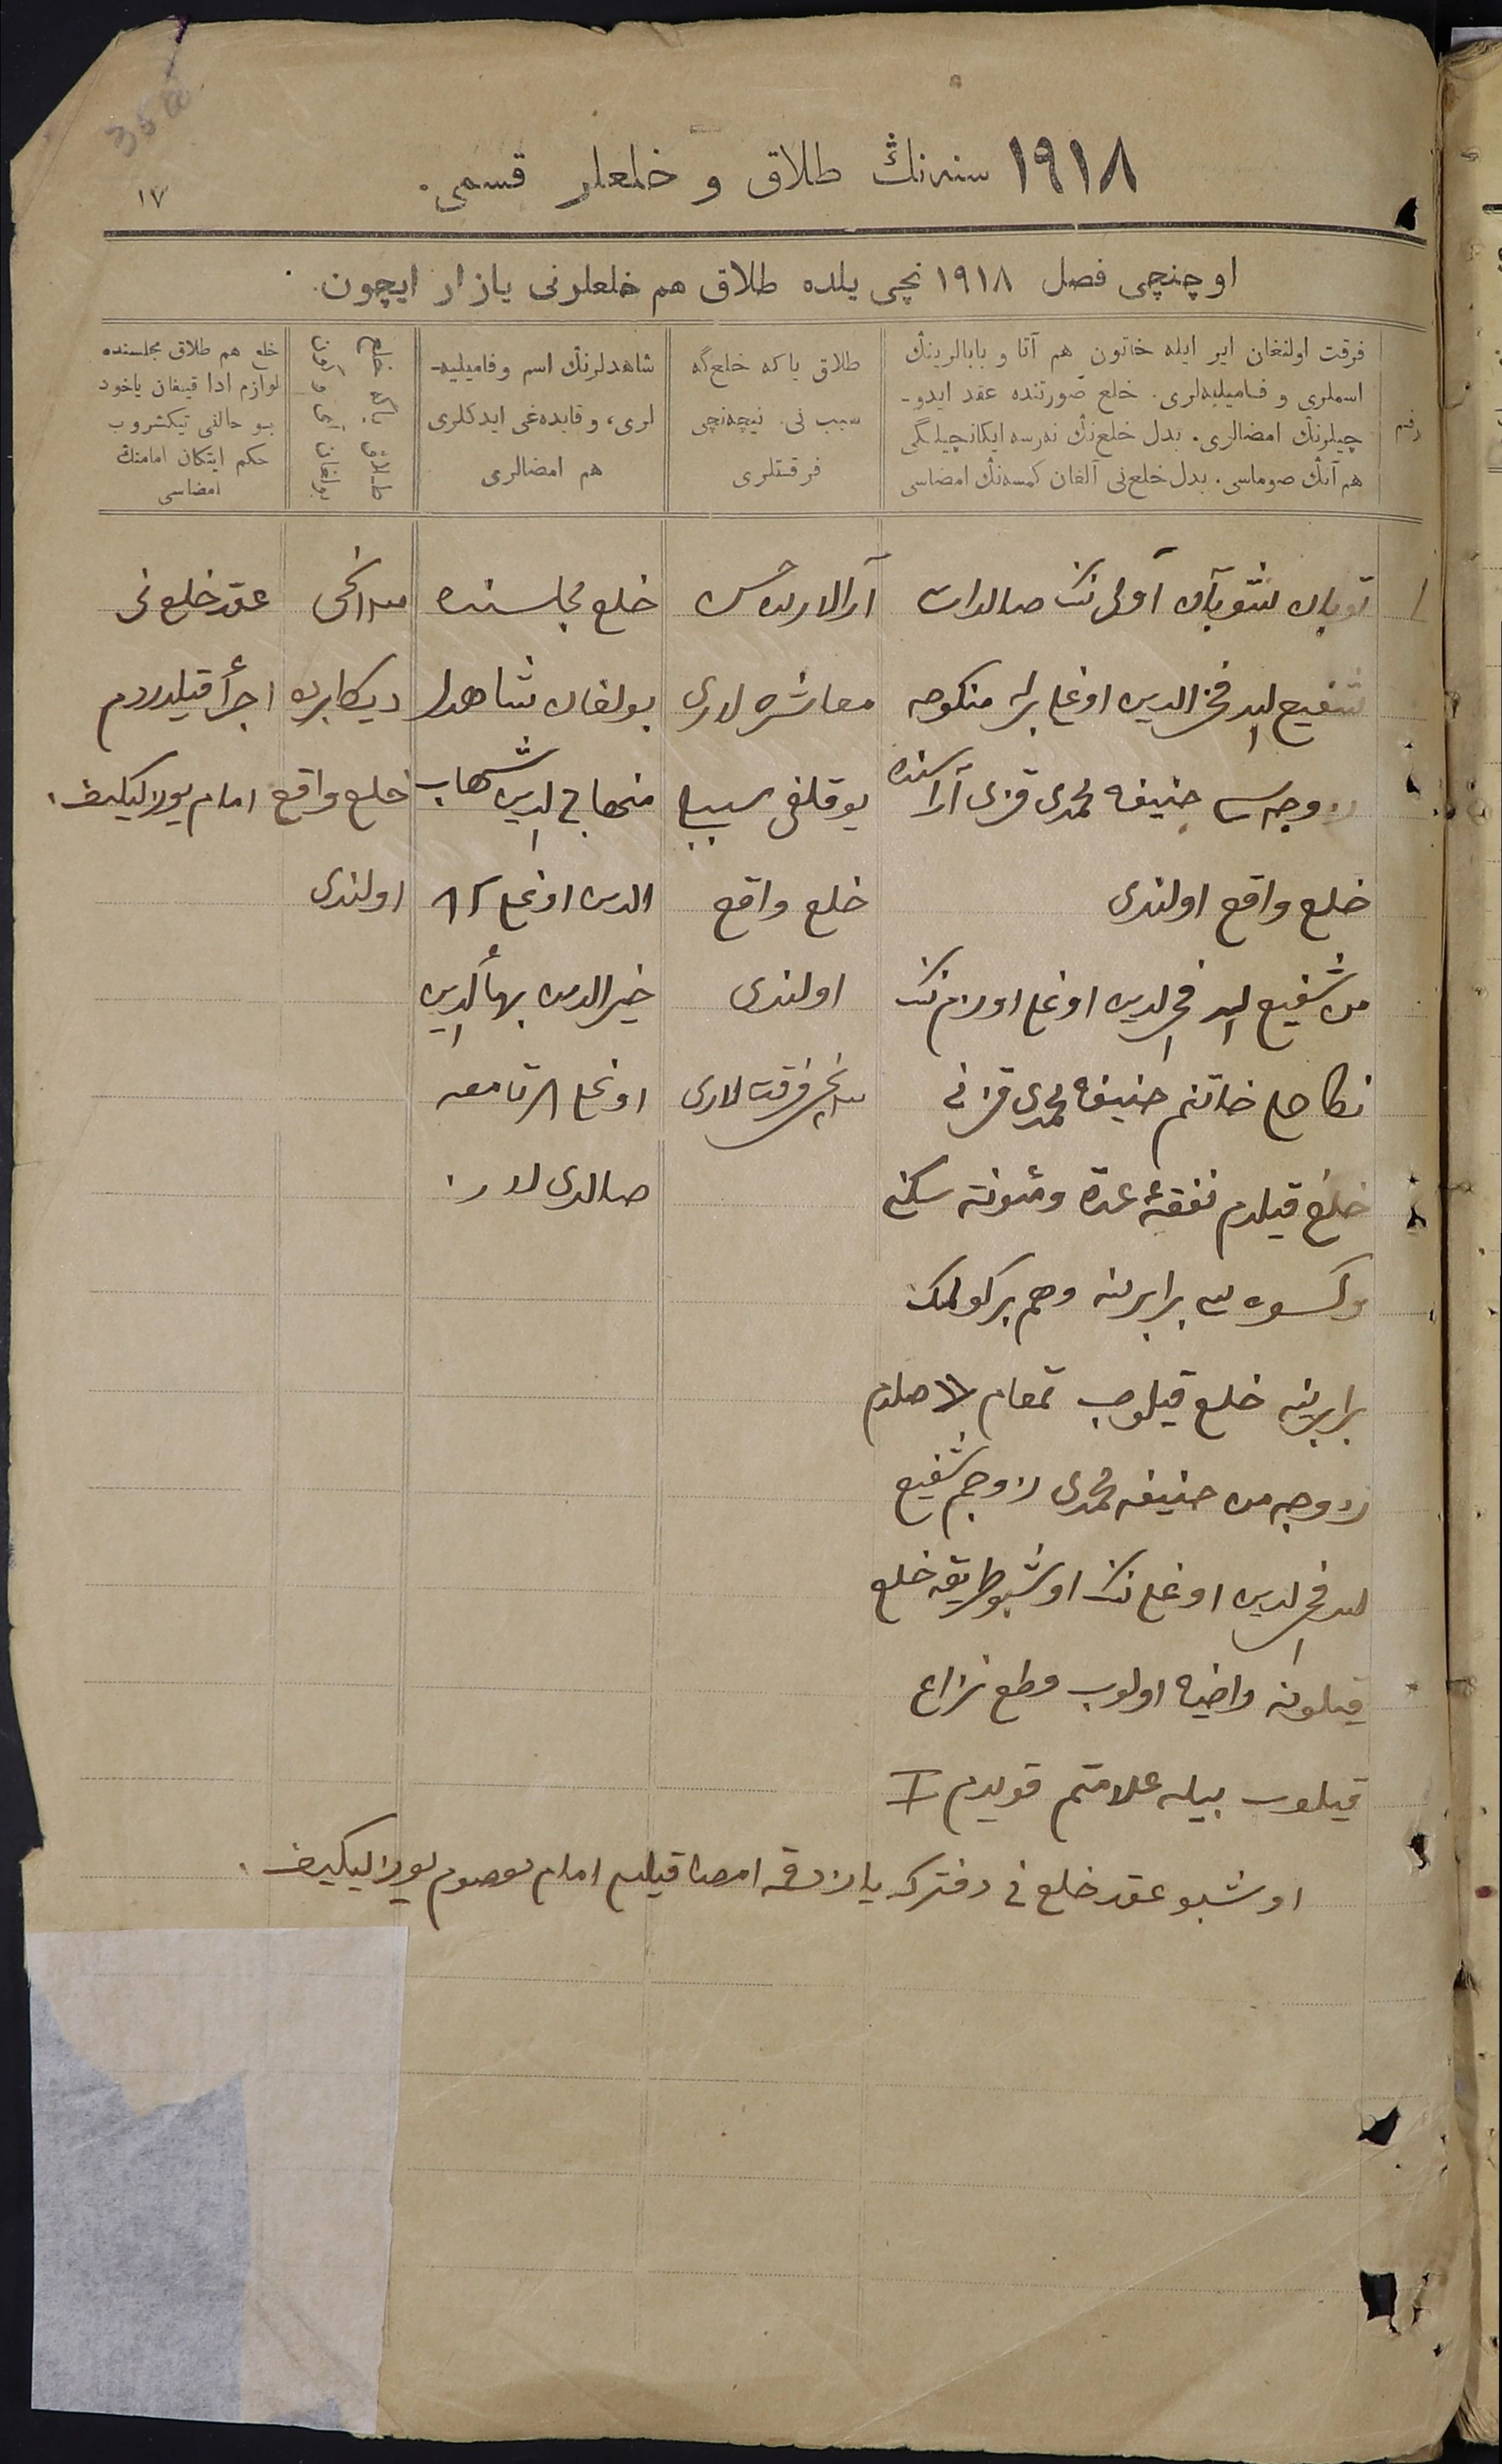 350
١٩١٨ سنه‌نڭ طلاق و خلعلر قسمی.
١٧
اوچنچی فصل ١٩١٨ نچی یلده طلاق هم خلعلرنی یازار ایچون.
رقم
فرقت اولنغان ایر ایله خاتون هم آتا و بابالرینڭ
اسملری و فامیلیه‌لری. خلع صورتنده عقد ایدو-
چیلرنڭ امضالری. بدل خلع‌نڭ نه‌رسه ایکانچیلگی
هم آنڭ صوماسی. بدل خلع‌نی آلغان کمسه‌نڭ امضاسی
طلاق یا که خلع‌گه
سبب نی. نیچه‌نچی
فرقتلری
شاهدلرنڭ اسم وفامیلیه-
لری، و قایده‌غی ایدکلری
هم امضالری
طلاق یا که خلع
بولغان آی و کون
خلع هم طلاق مجلسنده
لوازم ادا قیلغان یاخود
بو حالنی تیکشروب
حکم ایتکان امامنڭ
امضاسی
١
آولی نڭ صالدات
شفیع الله فخرالدین اوغلی برله منکوحه
زوجه سی حنیفه محمدی قزی آراسنده
خلع واقع اولندی
من شفیع الله فخرالدین اوغلی اوزم نڭ
نکاحلی خاتنم حنیفه محمدی قزنی
خلع قیلدم نفقهٔ عدة ومئونة سکنی
وکسوه سی برابرینه وهم بر کولمک
برابرینه خلع قیلوب تمغام صالدم
زوجه من حنیفه محمدی زوجم شفیع
الله فخرالدین اوغلی نڭ اوشبو طریقه خلع
قیلونه راضیه اولوب قطع نزاع
قیلوب بیله علامتم قویدم I
آرالارنده حسن
معاشره لاری
یوقلغی سببلی
خلع واقع
اولندی
نچی فرقت لاری
خلع مجلسنده
بولغان شاهدلر
منهاج الدین شهاب
الدین اوغلی
خیرالدین بهاءالدین
اوغلی تامغه
صالدی لار.
نچی
دیکابرده
خلع واقع
اولندی
عقد خلع نی
اجرأ قیلدردم
امام
اوشبو عقد خلع نی دفترکه یازدقه امضا قیلدم امام معصوم